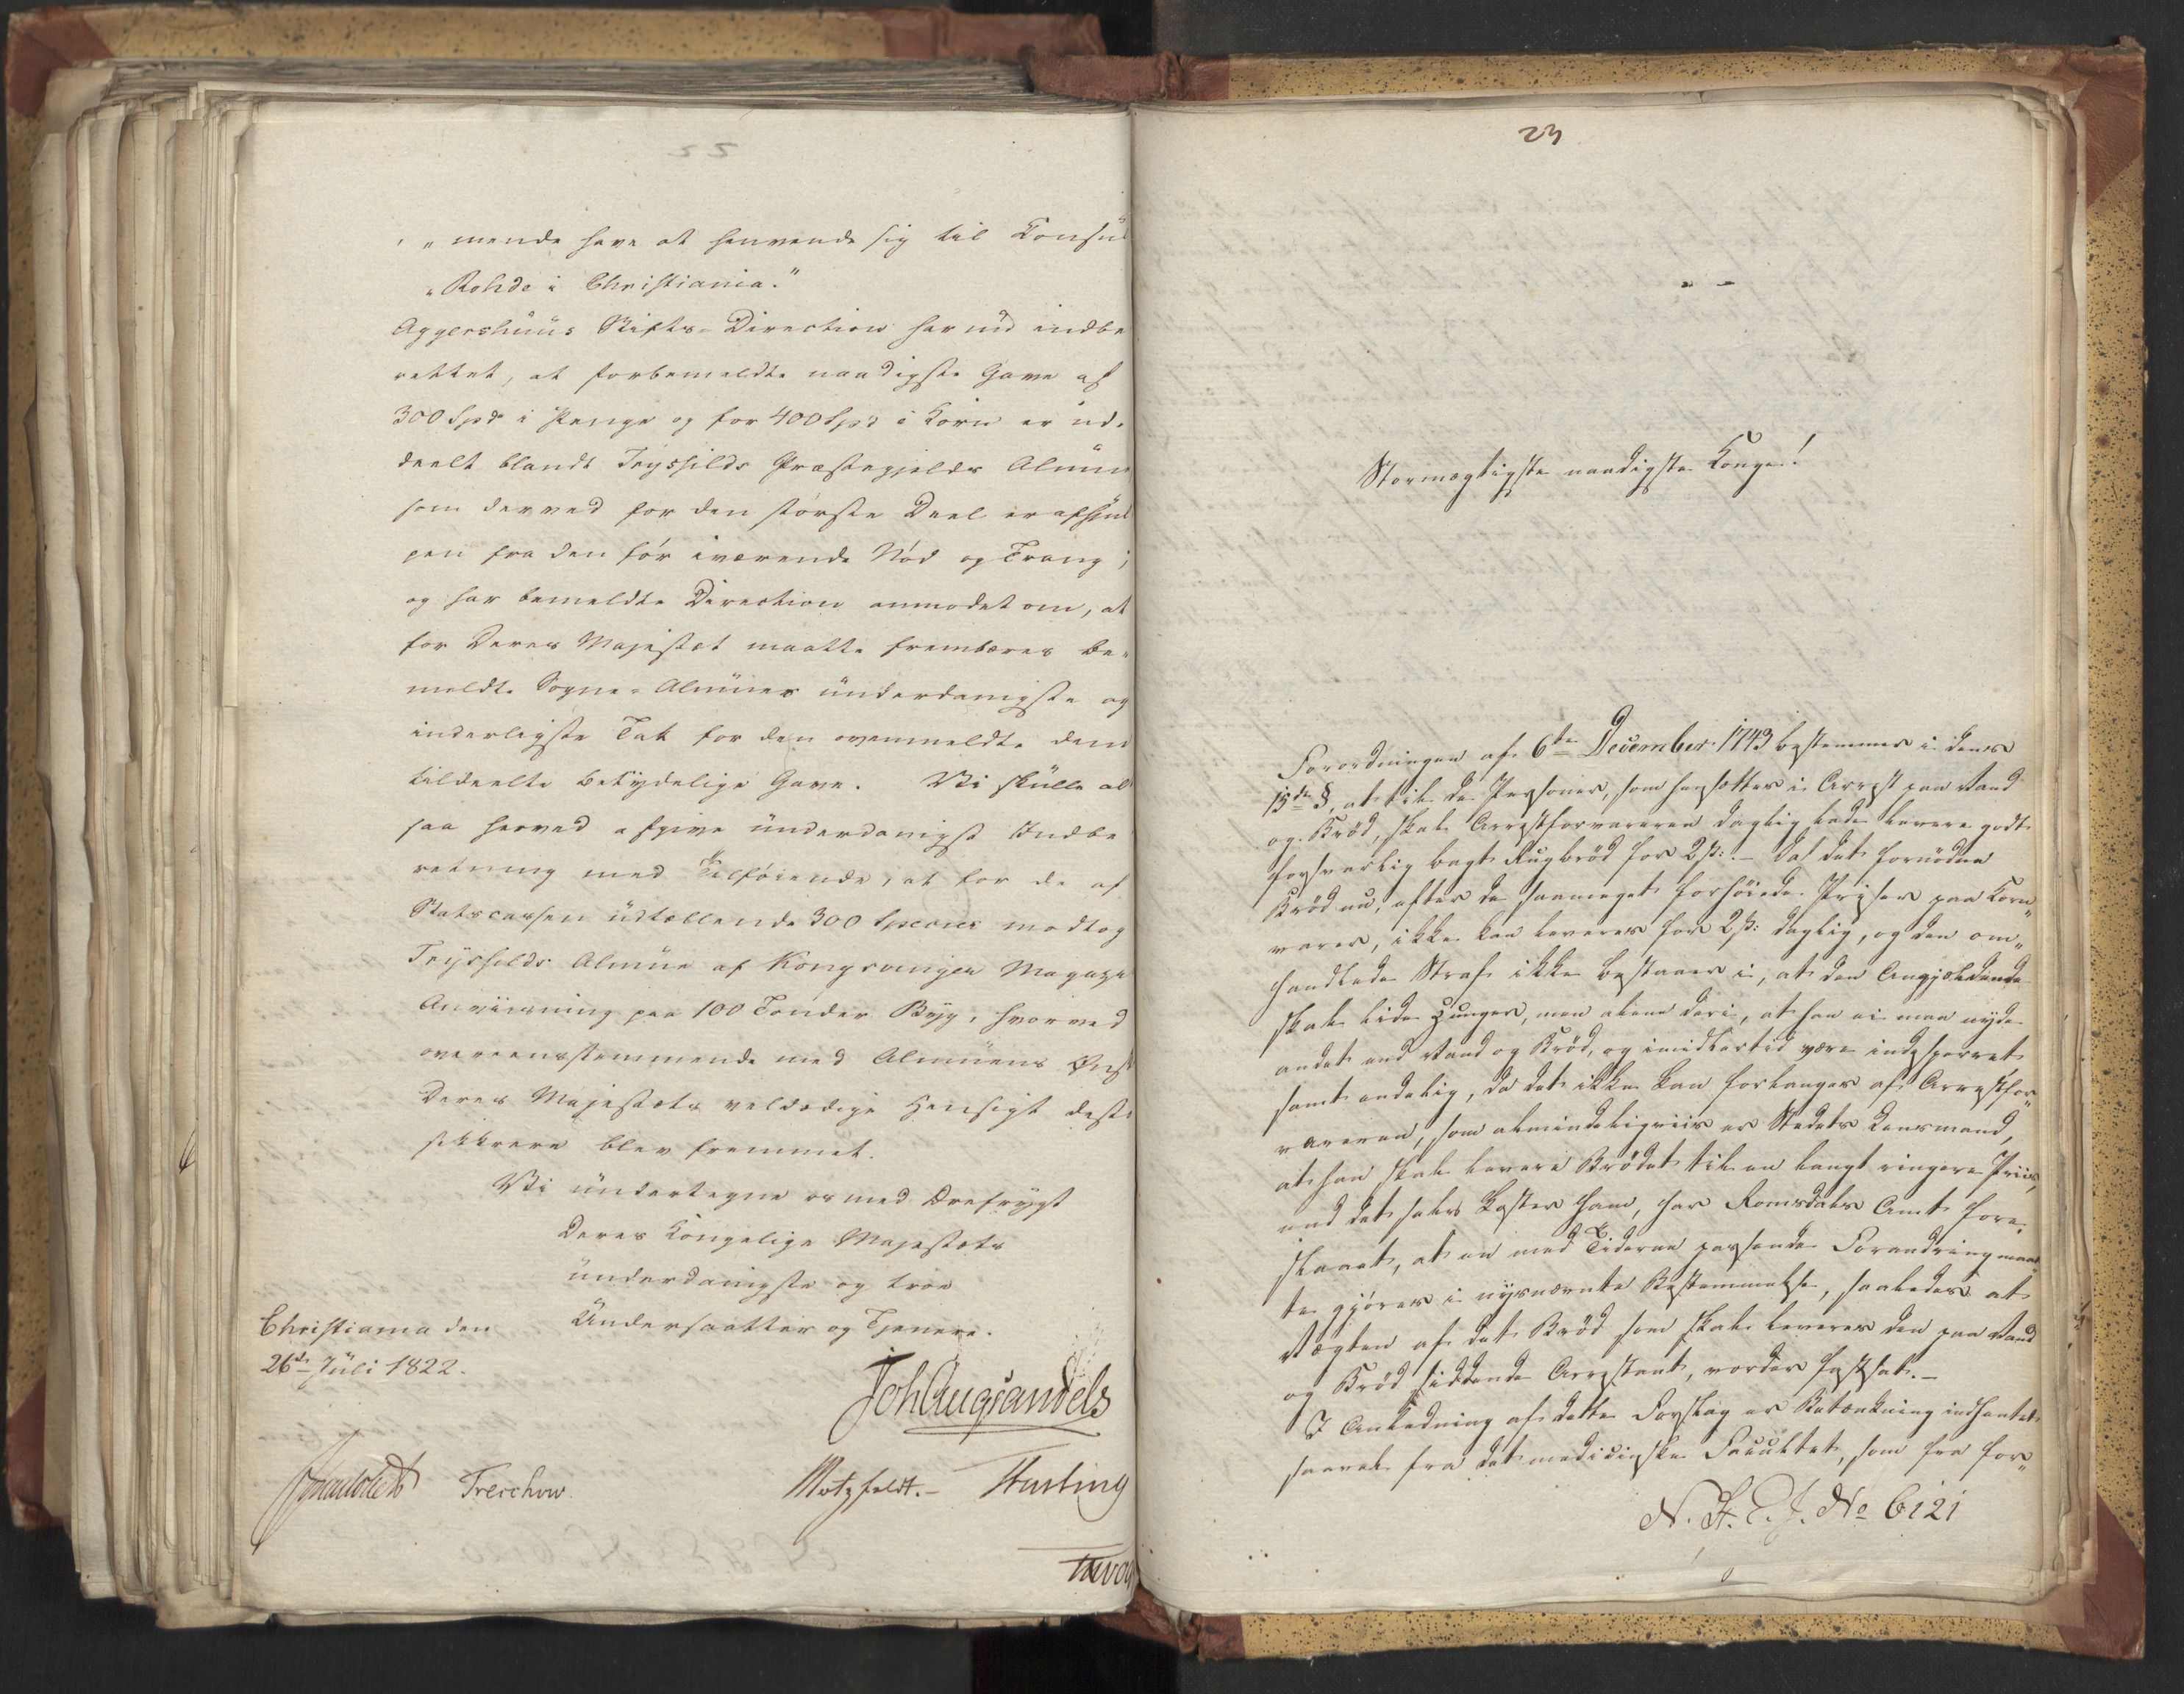 „mende have at henvende sig til Konsul
„Rohde i Christiania.“
Aggershuus Stifts-Direction har nu indbe
rettet, at forbemeldte naadigste Gave af
300 Spd i Penge og for 400 Spd i Korn er ud-
deelt blandt Trysilds Præstegjelds Almue
som derved for den største Deel er afhjul
pen fra den før iværende Nød og Trang;
og har bemeldte Direction anmodet om, at
for Deres Majestæt maatte frembæres be-
meldte Sogne-Almues underdanigste og
inderligste Tak for den ovenmeldte dem
tildeelte betydelige Gave. Vi skulle al
saa herved afgive underdanigst Indbe
retning med Tilføiende, at for de af
Statscassen udtællende 300 Species modtog
Trysilds Almue af Kongsvinger Magazin
Anviisning paa 100 Tønder Byg, hvorved
overeensstemmende med Almuens Ønske
Deres Majestæts veldædige Hensigt desto
sikkrere blev fremmet.
Vi undertegne os med Ærefrygt
Deres Kongelige Majestæts
underdanigste og troe
Undersaatter og Tjenere.
Christiania den
26de Juli 1822.
Joh Aug Sandels
Treschow.
Motzfeldt.-
23
Stormægtigste naadigste Konge!
Forordningen af 6te December 1743 bestemmer i dens
15de §, at til de Personer, som hensættes i Arrest paa Vand
og Brød, skal Arrestforvareren daglig lade levere godt
forsvarlig bagt Rugbrød for 2 ß:.- Da det fornødne
Brød nu, efter de saameget forhøiede Priser paa Korn„
varer, ikke kan leveres for 2 ß: daglig, og den om„
handlede Straf ikke bestaaer i, at den Angjældende
skal lide Hunger, men alene deri, at han ei maa nyde
andet end Vand og Brød, og imidlertid være indesperret,
samt endelig, da det ikke kan forlanges af Arrestfor„
vareren, som almindeligviis er Stedets Lensmand,
at han skal levere Brødet til en langt ringere Priis,
end det selv koster ham, har Romsdals Amt fore„
slaaet, at en med Tiderne passende Forandring maat„
te gjøres i nysnævnte Bestemmelse, saaledes at
Vægten af det Brød som skal leveres den paa Vand
og Brød siddende Arrestant, vorder fastsat.-
I Anledning af dette Forslag er Betænkning indhentet
saavel fra det medicinske Facultet, som fra for„
N. St. E. J. No 6121